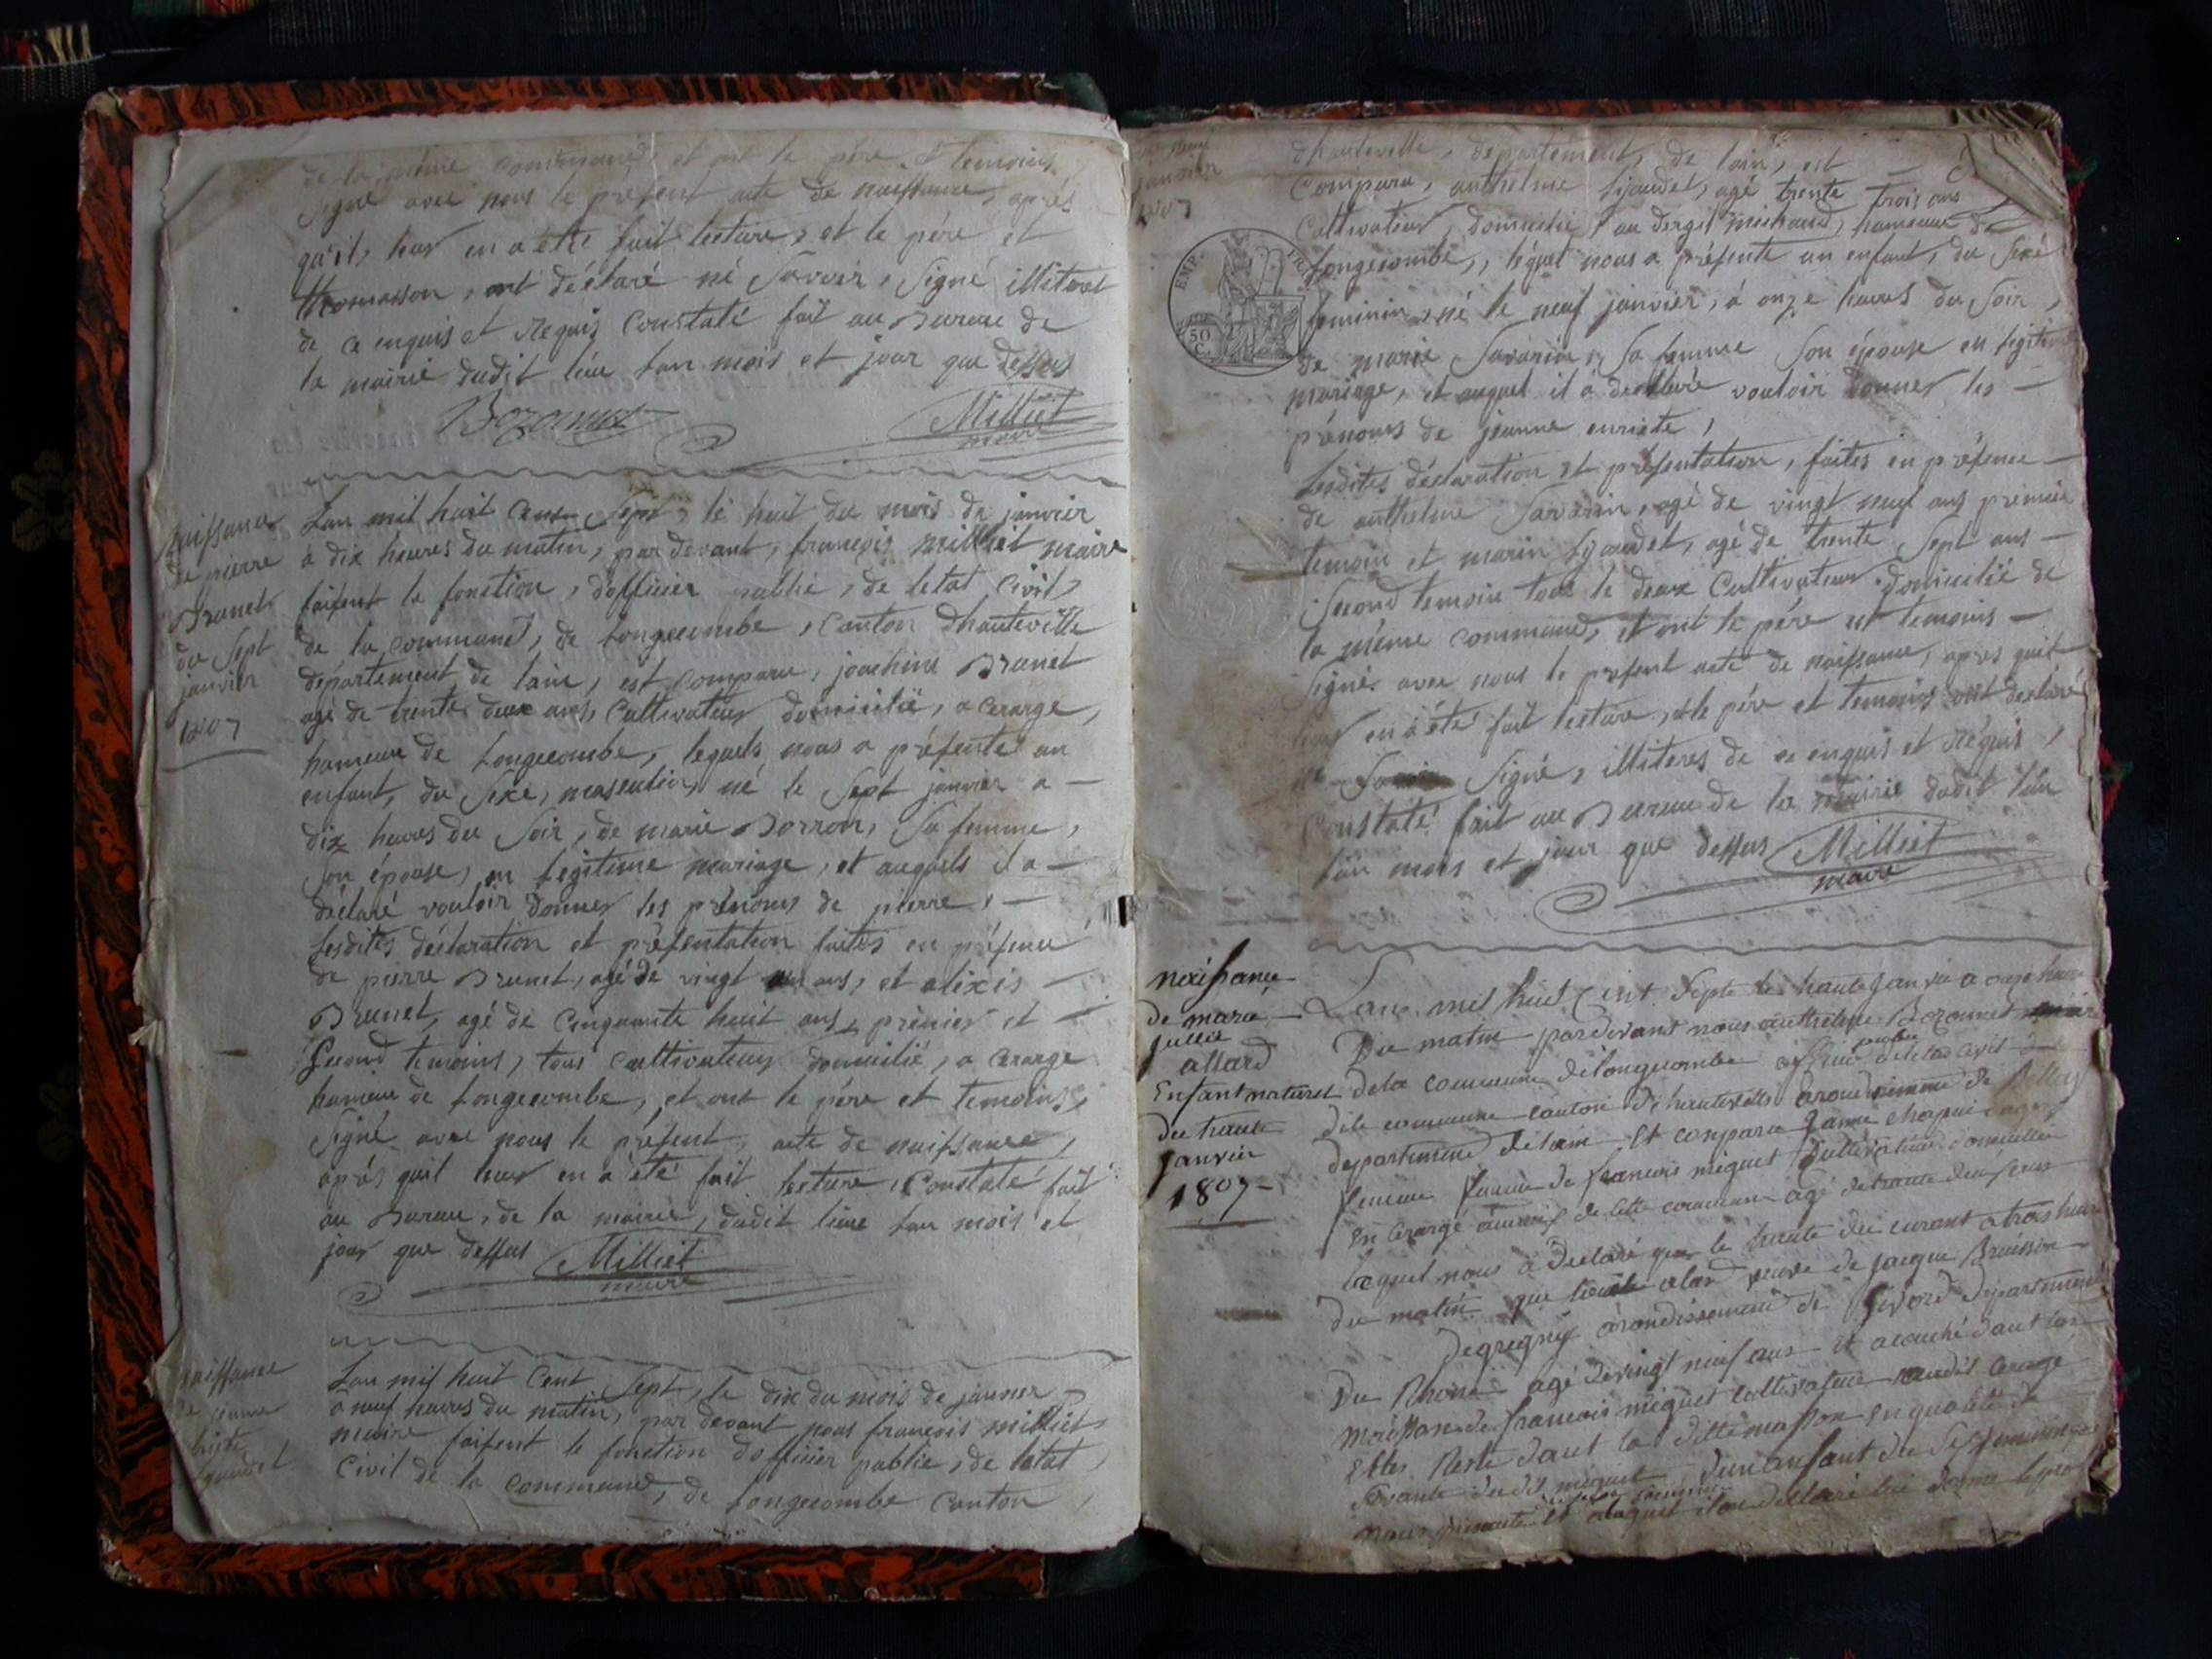 de la même commune, et ont le père et temoins,
Signé avec nous le présent acte de naissance, après
qu'il, leur en a été fait lecture, et le père et
thomasson, ont déclaré né Savoir, Signé illiteret
de ce enquis et requis Constaté fait au Bureau de
la mairie dudit lieu lan mois et jour que dessus
Milliet
maire
naissance
de pierre
Brunet
du Sept
janvier
1807
Lan mil huit Cent Sept, le huit du mois de janvier
à dix heures du matin, par devant, françois milliet maire
faisent la fonction, dofficier public, de letat Civil,
de la commune, de Longecombe, Canton dhauteville
département de lain, est comparu, joachim Brunet
agé de trente deux ans, Cultivateur domicilié, a Cerarge,
hameau de Longecombe, lequels nous a présenté un
enfant, du Sexe, masculin, né le Sept janvier a —
dix heures du Soir, de marie Borron, Sa femme,
Son épouse, en legitime mariage, et auquels il a —
déclaré vouloir donner les prénoms de pierre, —
Lesdites déclaration et présentation faites en présence
de pierre Brunet, agé de vingt ans, et alixis —
Brunet, agé de Cinquante huit ans, prémier et —
Second temoins, tous Cultivateurs domicilié, a Cerarge
hameau de Longecombe, et ont le père et temoins,
Signé avec nous le présent, acte de naissance,
après quil leur en a été fait lecture, Constaté fait
au Bureau, de la mairie, dudit lieu lan mois et
jour que dessus Milliet
maire
naissance
Lan mil huit Cent Sept, le dix du mois de janvier
à neuf heures du matin, par devant nous françois milliet
maire faisent le fonction dofficier public, de letat
Civil de la commune, de Longecombe Canton,
janvier
1807
dhauteville, département, de lain, est
Comparu, anthelme Lyaudet, agé trente trois ans
Cultivateur, domicilié au dergit michaud, hameau de
Longecombe,, léquel nous a présenté un enfant, du Sexé
feminin, né le neuf janvier, à onze heures du Soir,
de marie Savarin, Sa femme Son épouse en legitime
mariage, et auquel il a déclaré vouloir donner les —
prénoms de jeanne enriete,
Lesdites déclaration et présentation, faites en présence —
de anthelme Savarin, agé de vingt neuf ans prémier
temoin et marin Lyaudet, agé de trente Sept ans —
Second temoin tous le deux Cultivateur domicilié de
la même commune, et ont le père et temoins —
Signé avec nous le présent acte de naissance, après quil
leur en a été fait lecture, et le père et temoins ont déclaré
Signé, illiteres de ce enquis et réquis,
Constaté fait au Bureau de la mairie dudit lieu
lan mois et jour que dessus Milliet
maire
EMP.
50
C.
naissance
de marie
jullie
allard
Enfant naturel
du trante
janvier
1807
Lan mil huit Cent Septe le trante Janvie a onze heure
Du matin pardevant nous anthelme Bozonnet
dela commune de longecombe officier public de letat civil
dite commune canton dhauteville arondisemme de Belley
departement de lain Et comparu Janne chapui agee
femme de francois miguet Cultivateur domicillie
En Cerarge de Cette commune agé de trante
laquel nous a Declaré que le trante du curant a trois heure
Du matin que alard veuve de jacque Bruisson
arondissement de departement
Du Rhone agé de vingt neuf ans Et acouché dant la
maison de francois miguet Cultivateur audit Cerarge
Elles Reste dant la ditte masson En qualité de
Servante du dit miguet Dun anfant du Sexe feminin
nous presente Et auquel a declaré lui donne le pre